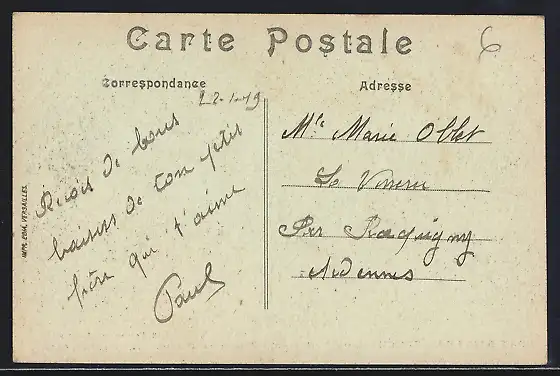 Carte Postale
6
Correspondance
22-1-19
Reçois de bons
baisers de ton petit
frère qui t'aime
Paul
Adresse
Mlle Marie Oblet
Le
Par Rocquigny
Ardennes
IMP. EDIA, VERSAILLES